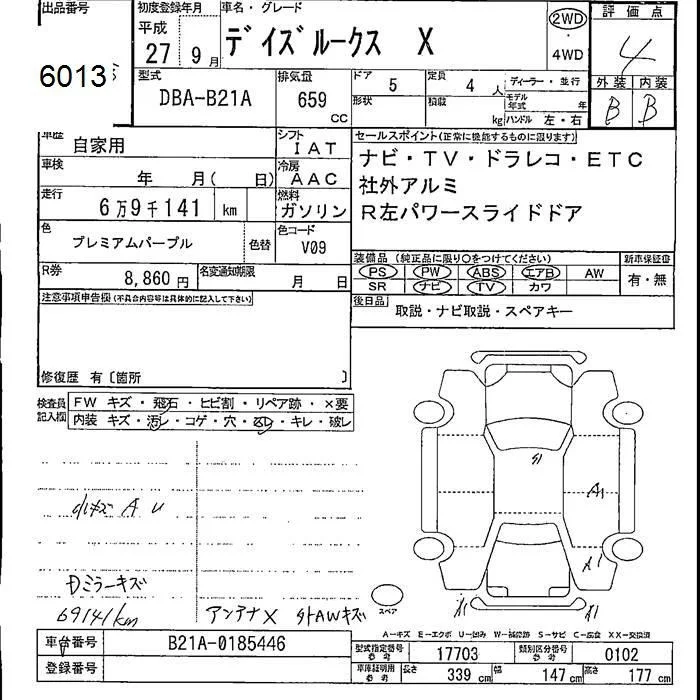 出品番号
6013
初度登録年月
平成
27 9月
車名・グレード
デイズルークス X
2WD
・
4WD
評価点
4
外装 内装
B B
型式
DBA-B21A
排気量
659
CC
ドア
5
定員
4人
形状
積載
kg
ディーラー・並行
モデル年式 年
ハンドル 左・右
車歴
自家用
シフト
IAT
車検
年 月( 日)
冷房
AAC
走行
6万9千141 km
燃料
ガソリン
色
プレミアムパープル
色替
色コード
V09
R券
8,860円
名変通知期限
月 日
セールスポイント(正常に機能するものに限ります)
ナビ・TV・ドラレコ・ETC
社外アルミ
R左パワースライドドア
装備品 (純正品に限り〇をつけてください)
PS PW ABS エアB AW
SR ナビ TV カワ
新車保証書
有・無
後日品
取説・ナビ取説・スペアキー
注意事項申告欄 (不具合内容等は具体的に記入して下さい)
修復歴 有〔箇所 〕
検査員記入欄
FW キズ・飛石・ヒビ割・リペア跡・×要
内装 キズ・汚レ・コゲ・穴・スレ・キレ・破レ
小キズ A U
Dミラーキズ
69141km
アンテナX 外AWキズ
A1
スペア
A-キズ E-エクボ U-凹み W-補修跡 S-サビ C-腐食 XX-交換済
車台番号
B21A-0185446
登録番号
型式指定番号
参考
17703
類別区分番号
参考
0102
車庫証明用
参考
長さ 339 cm 幅 147 cm 高さ 177 cm